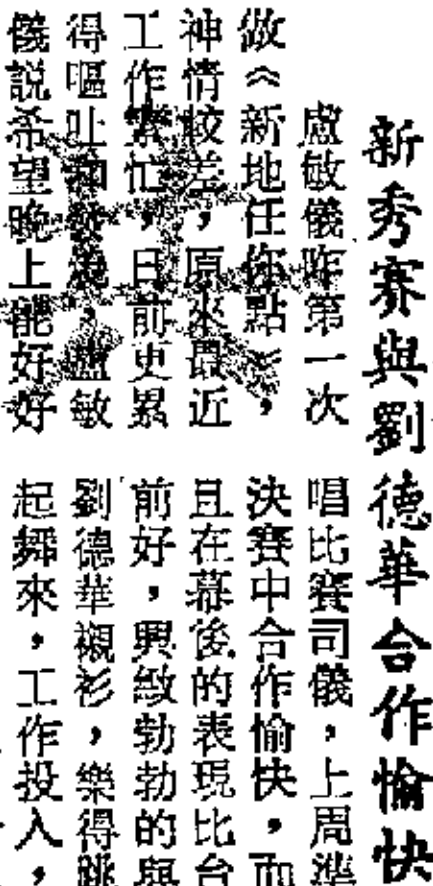 新秀賽與劉德華合作愉快
盧敏儀昨第一次
做《新地任你點》，
神情較差，原來最近
工作繁忙，日前更累
得嘔吐和發燒，盧敏
儀説希望晚上能好好
唱比賽司儀，上周準
決賽中合作愉快，而
且在幕後的表現比台
前好，興緻勃勃的與
劉德華襯衫，樂得跳
起舞來，工作投入，